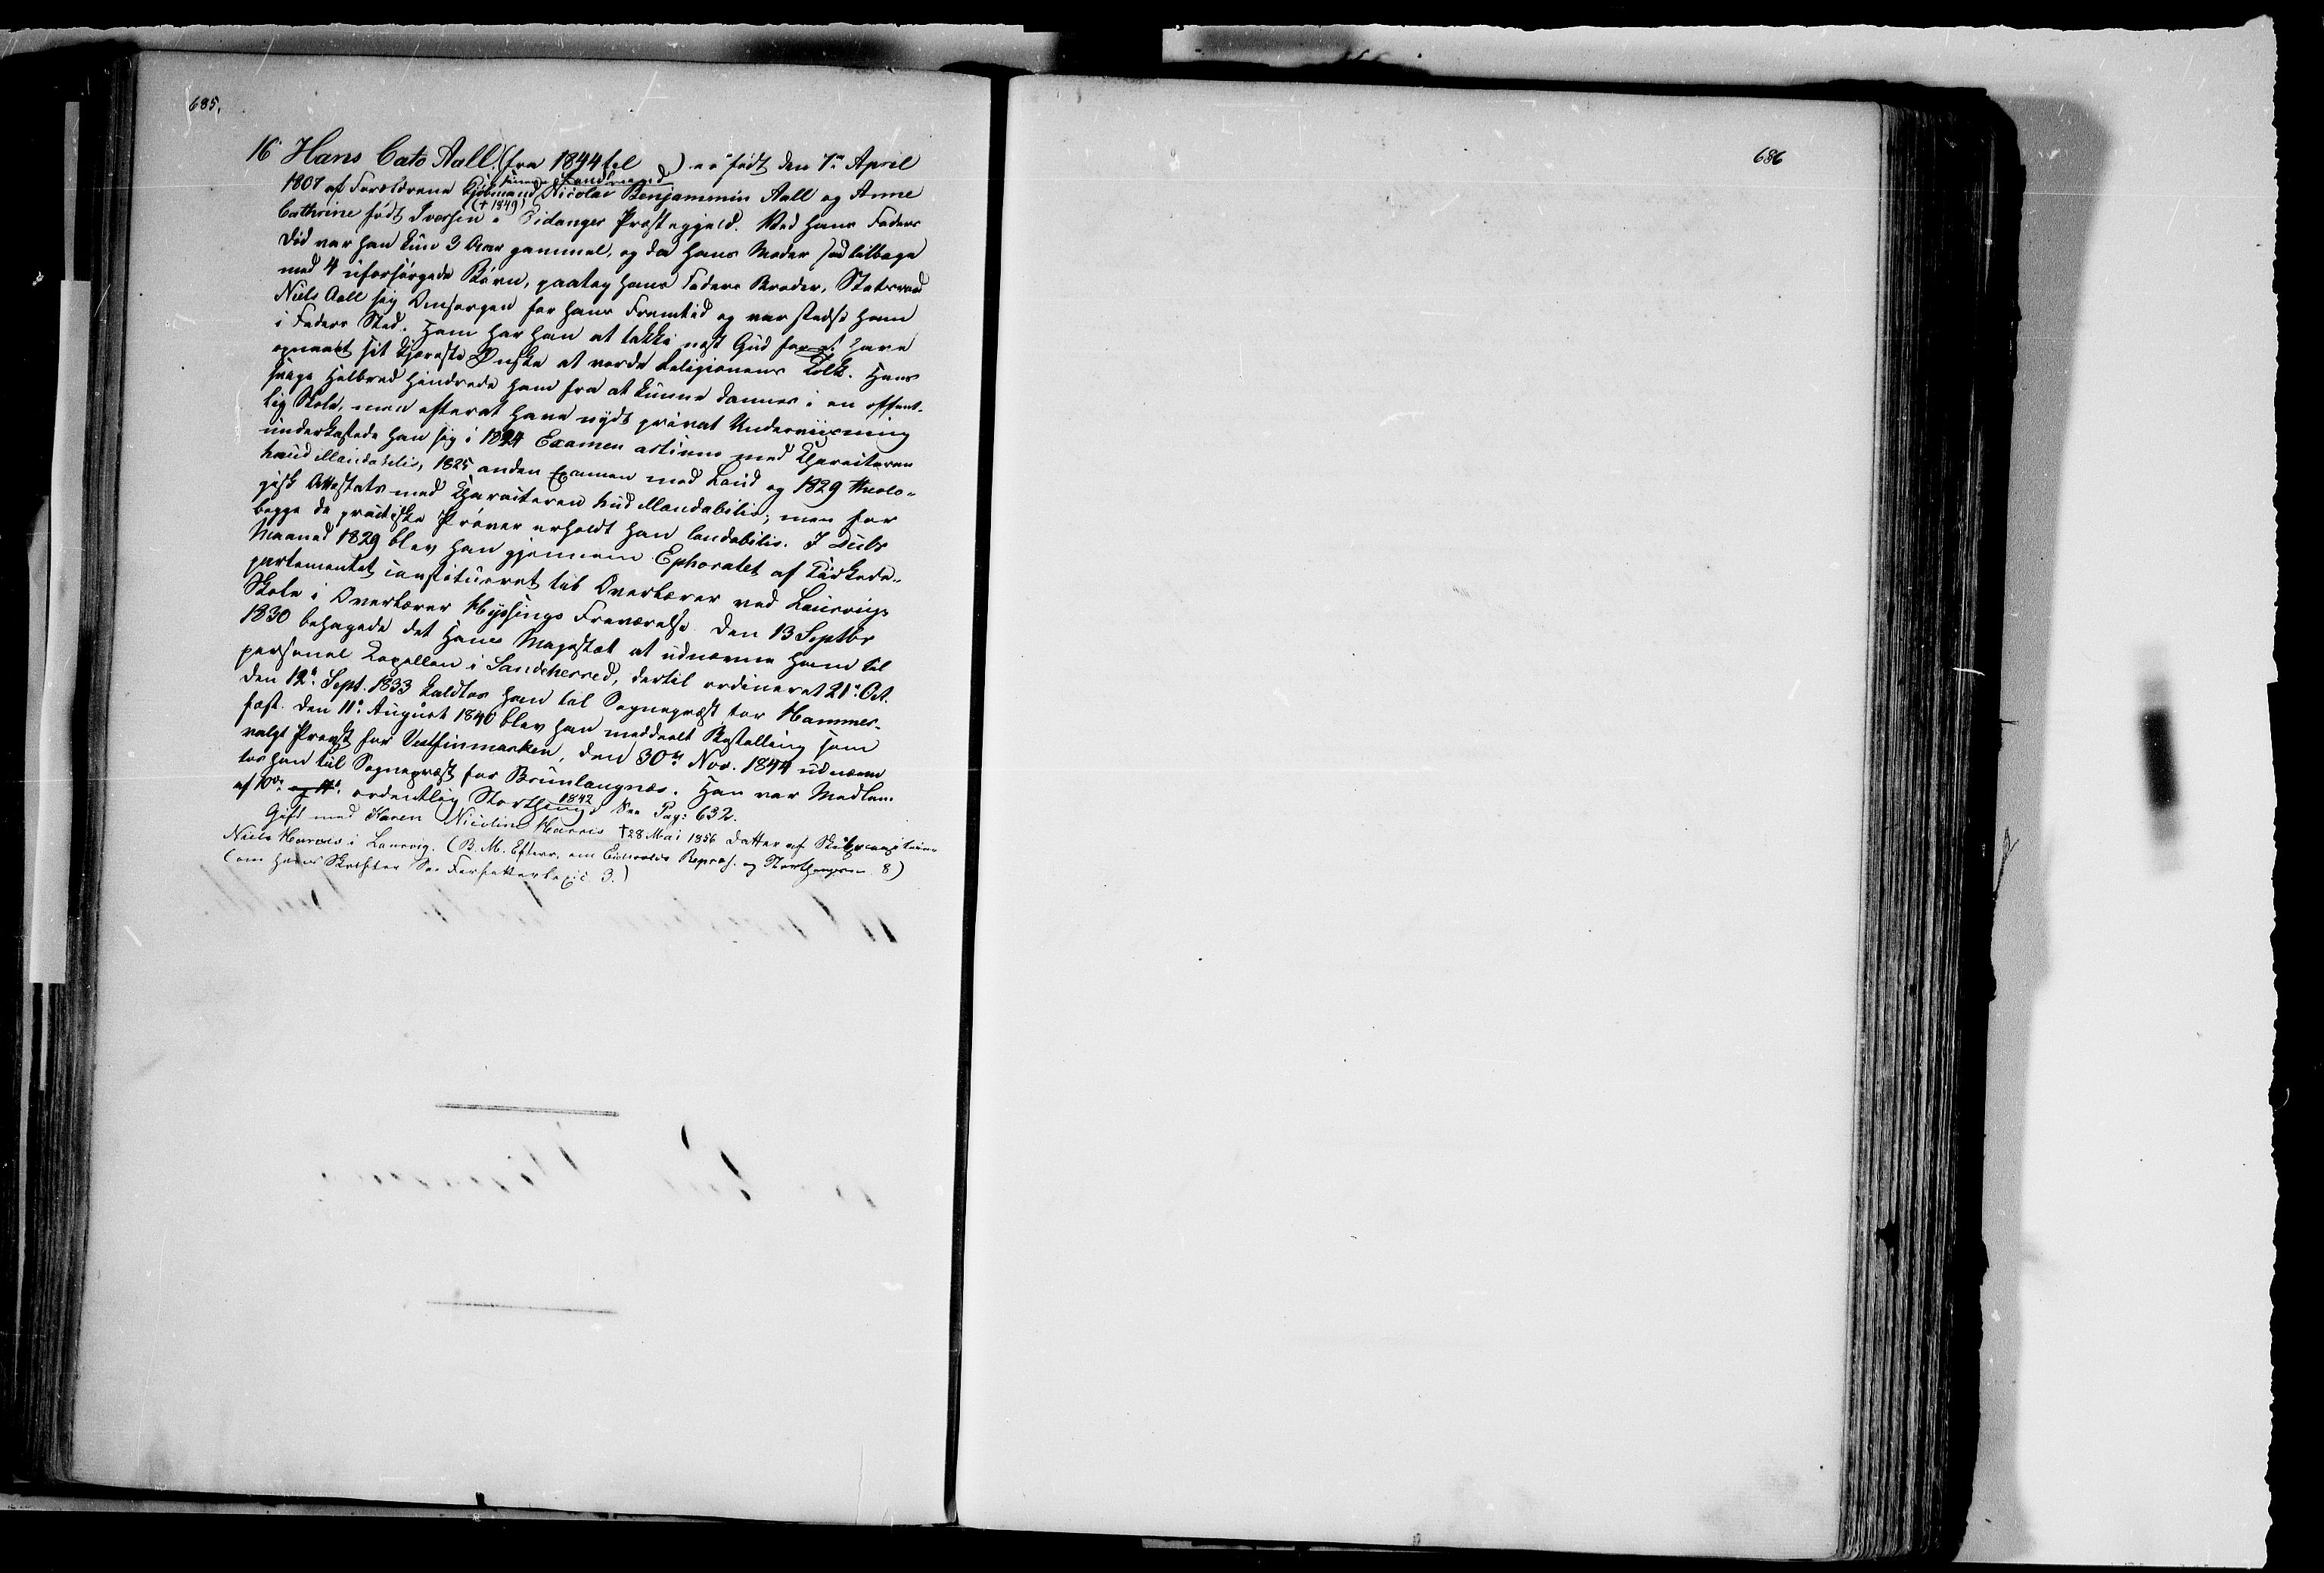 685.
16 Hans Cato Aall. (fra 1844 til ) er født den 7de April
senere Landmand
1807 af Forældrene Kjøbmand Nicolai Benjammin Aall og Anne
(† 1849)
Cathrine født Iversen i Eidanger Præstegjeld. Ved hans Faders
Død var han kun 3 Aar gammel, og da hans Moder sad tilbage
med 4 uforsørgede Børn, paatog hans Faders Broder, Statsraad
Niels Aall sig Omsorgen for hans Fremtid og var stedse ham
i Faders Sted. Ham har han at takke næst Gud for at have
opnaaet sit kjæreste Ønske at vorde Religionens Tolk. Hans
svage Helbred hindrede ham fra at kunne dannes i en offent-
lig Skole, men efterat have nydt privat Underviisning
underkastede han sig i 1824 Examen artium med Charakteren
haud illaudabilis, 1825 anden Examen med Laud og 1829 theolo-
gisk Attestats med Charakteren haud illaudabilis; men for
begge de practiske Prøver erholdt han laudabilis. I Juli
Maaned 1829 blev han gjennem Ephoratet af Kirkede-
partementet constitueret til Overlærer ved Laurvigs
Skole i Overlærer Fraværelse. Den 13 Septbr
1830 behagede det Hans Majestæt at udnævne ham til
personel Capellan i Sandeherred, dertil ordineret 21de Oct.
Den 12te Sept. 1833 kaldtes han til Sognepræst for Hammer-
fest. Den 11te August 1840 blev han meddeelt Bestalling som
valgt Provst for Vestfinmarken, den 30te Nov. 1844 udnævn-
tes han til Sognepræst for Brunlangnæs. Han var Medlem
1842
af 10de og 11te ordentlig Storthing See Pag: 632.
Gift med Karen Nicoline Harris † 28 Mai 1856 Datter af Skibscapitain
Niels Harris i Laurvig. (B. M. Efterr. om Eidsvolds Repræs. og Storthingsm. 8)
(om hans Skrifter See Forfatterlexic. 3.)
686